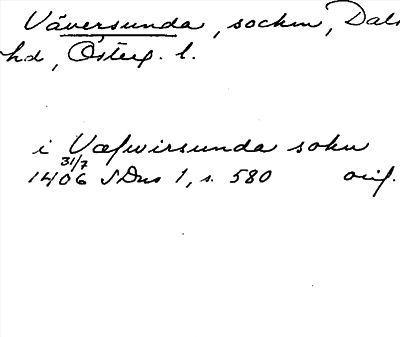 Väversunda, socken, Dals
hd, Österg. l.
i Væfwirsunda sokn
31/7
1406 SDns 1, s. 580 orig.